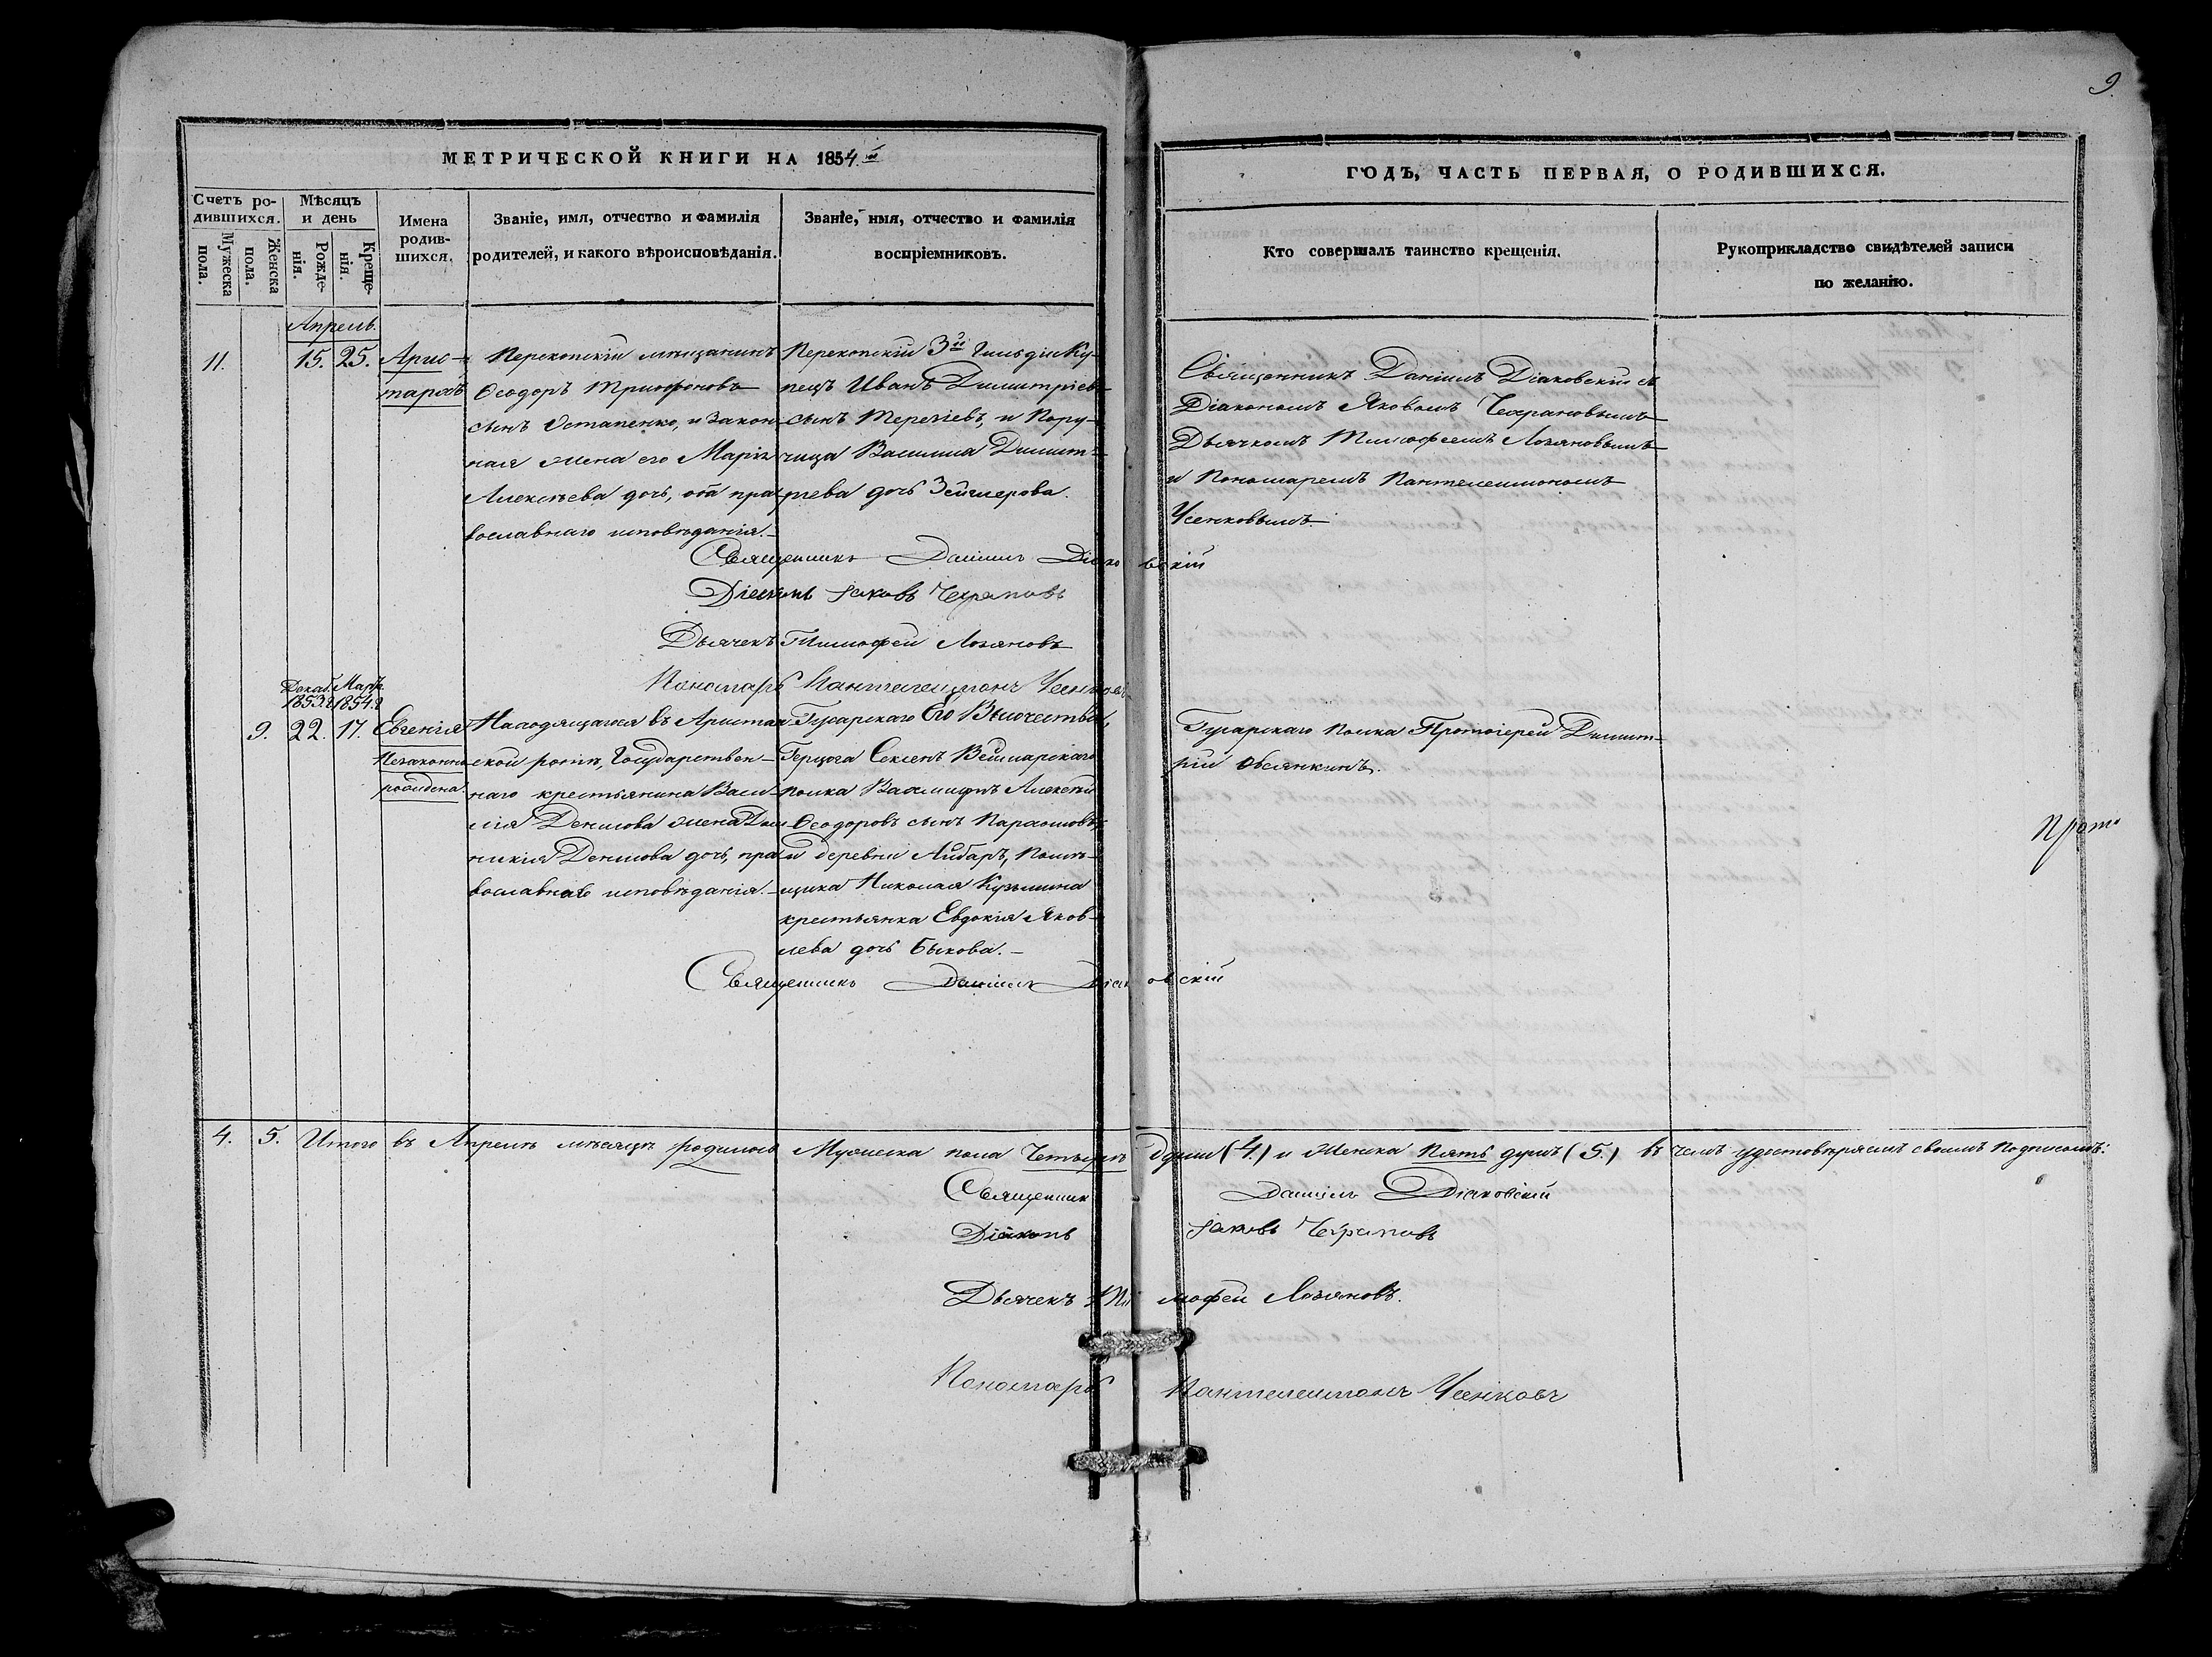 9.
МЕТРИЧЕСКОЙ КНИГИ НА 1854.й
ГОДЪ, ЧАСТЬ ПЕРВАЯ, О РОДИВШИХСЯ.
Счетъ ро-
дившихся.
Мужеска
пола.
Женска
пола.
Мѣсяцъ
и день
Рожде-
нія.
Креще-
нія.
Имена
родив-
шихся.
Званіе, имя, отчество и фамилія
родителей, и какого вѣроисповѣданія.
Званіе, имя, отчество и фамилія
воспріемниковъ.
Кто совершалъ таинство крещенія.
Рукоприкладство свидѣтелей записи
по желанію.
Апрель.
11.
15.
25.
Арис-
тархъ
Перекопскій мѣщанинъ
Ѳеодоръ Трифоновъ
сынъ Остапенко, и закон-
ная жена его Марія
Алексѣева дочь, оба пра-
вославнаго исповѣданія.-
Перекопскій 3й Гильдіи Ку-
пецъ Иванъ Димитріевъ
сынъ Теречіевъ, и Пору-
чица Василиса Димит-
ріева дочь Зейгмерова.
Священникъ Даніилъ Діаковскій съ
Діакономъ Яковомъ Чехрановымъ
Дьячкомъ Тимофеемъ Лозяновымъ
и Пономаремъ Пантелеимономъ
Усенковымъ.
Священникъ Даніилъ Діаковскій
Діаконъ Іаковъ Чехрановъ
Дьячекъ Тимофей Лозяновъ
Пономарь Пантелеимонъ Усенковъ
Декаб.
1853.г.
Март.
1854.г.
9.
22.
17.
Евгенія
Незаконно
рождена.
Находящагося въ Арестан-
ской ротѣ, Государствен-
наго крестьянина Васи-
лія Денисова жена Дом-
никія Денисова дочь, пра-
вославнаго исповѣданія.-
Гусарскаго Его Высочества
Герцога Саксенъ Веймарскаго
полка Вахмистръ Алексѣй
Ѳеодоровъ сынъ Пархомовъ,
и деревни Айбаръ, Помѣ-
щика Николая Кузьмина
крестьянка Евдокія Яков-
лева дочь Быкова.-
Гусарскаго полка Протоіерей Димит-
рій Овсянкинъ.
Прото
Священникъ Даніилъ Діаковскій
4.
5.
Итого въ Апрелѣ мѣсяцѣ родилось Мужеска пола Четыре души (4.) и Женска Пять душъ (5.) въ чемъ удостовѣряемъ своимъ Подписомъ:
Священникъ Даніилъ Діаковскій
Діаконъ Іаковъ Чехрановъ
Дьячекъ Тимофей Лозяновъ.
Пономарь Пантелеимонъ Усенковъ